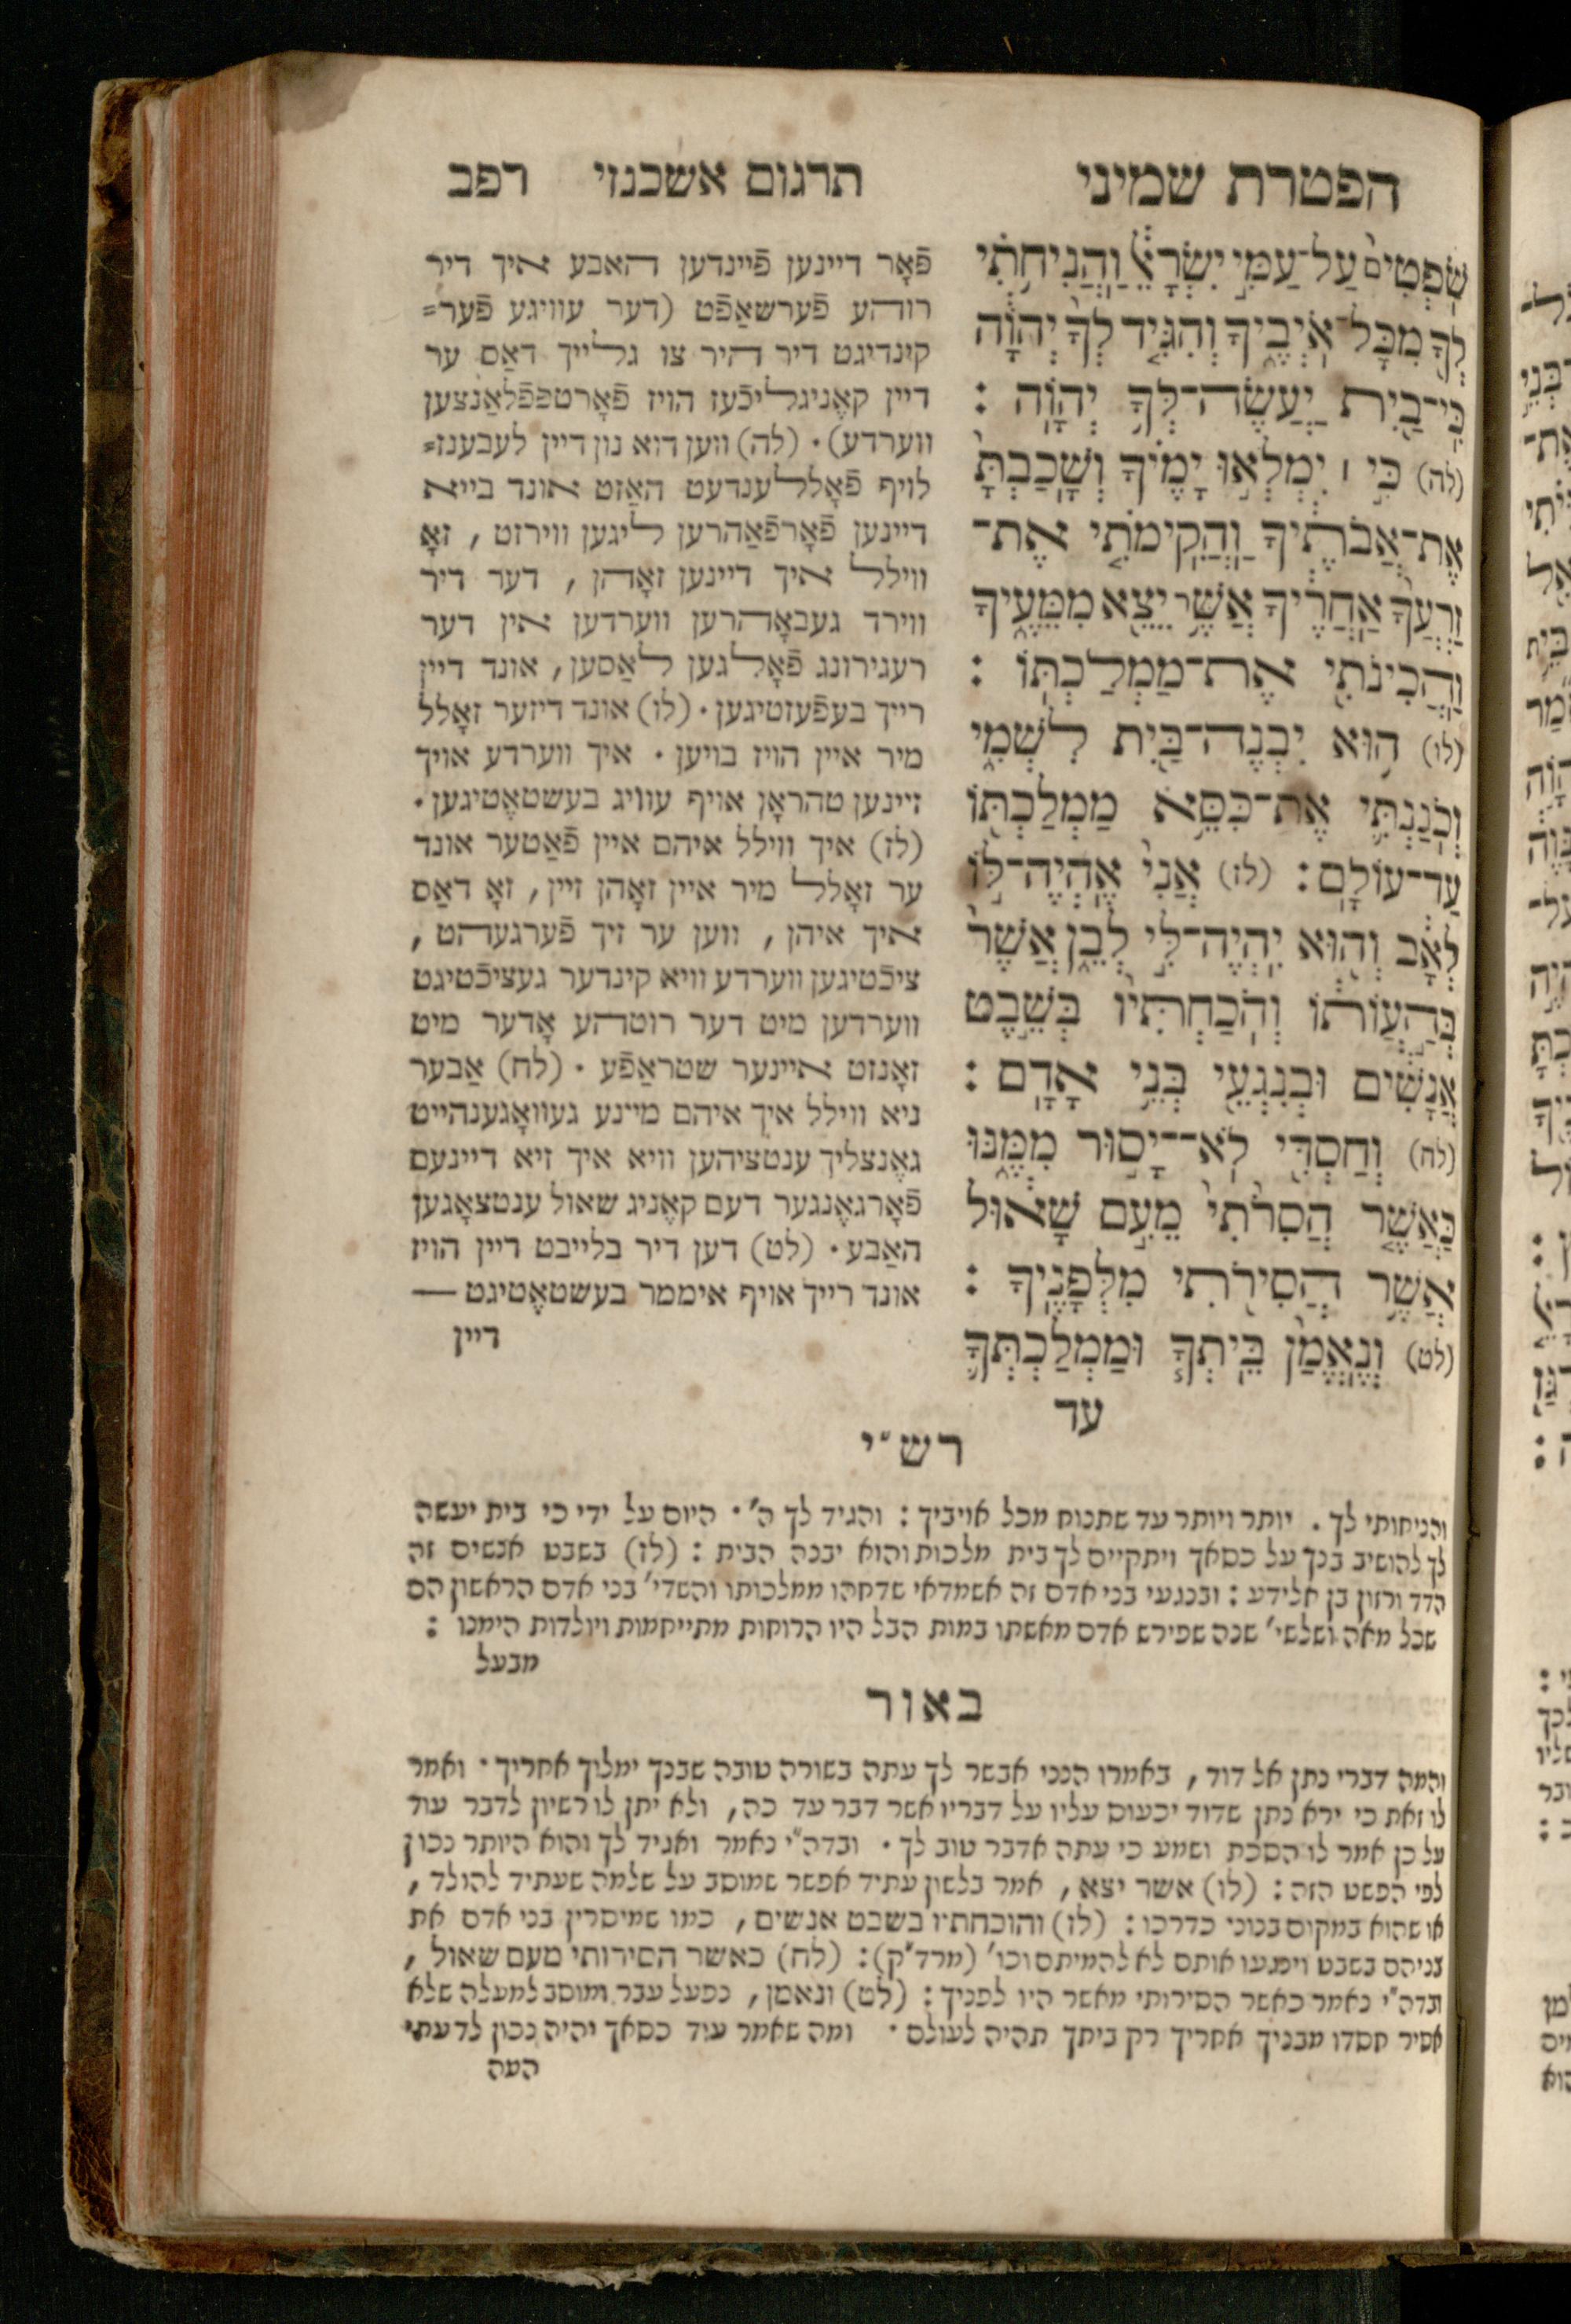 הפטרת שמיני
תרגום אשכנזי רפב
שֹׁפְטִים֙ עַל־עַמִּ֣י יִשְׂרָאֵ֔ל וַהֲנִיחֹ֥תִי
לְךָ֖ מִכָּל־אֹיְבֶ֑יךָ וְהִגִּ֤יד לְךָ֙ יְהֹוָ֔ה
כִּי־בַ֖יִת יַעֲשֶׂה־לְּךָ֥ יְהֹוָֽה :
(לה) כִּ֣י ׀ יִמְלְא֣וּ יָמֶ֗יךָ וְשָֽׁכַבְתָּ֙
אֶת־אֲבֹתֶ֔יךָ וַהֲקִימֹתִ֤י אֶת־
זַרְעֲךָ֙ אַחֲרֶ֔יךָ אֲשֶׁ֥ר יֵצֵ֖א מִמֵּעֶ֑יךָ
וַהֲכִינֹתִ֖י אֶת־מַמְלַכְתּֽוֹ :
(לו) ה֥וּא יִבְנֶה־בַּ֖יִת לִשְׁמִ֑י
וְכֹנַנְתִּ֛י אֶת־כִּסֵּ֥א מַמְלַכְתּ֖וֹ
עַד־עוֹלָֽם : (לז) אֲנִי֙ אֶהְיֶה־לּ֣וֹ
לְאָ֔ב וְה֖וּא יִהְיֶה־לִּ֣י לְבֵ֑ן אֲשֶׁר֙
בְּהַ֣עֲוֺת֔וֹ וְהֹֽכַחְתִּיו֙ בְּשֵׁ֣בֶט
אֲנָשִׁ֔ים וּבְנִגְעֵ֖י בְּנֵ֥י אָדָֽם :
(לח) וְחַסְדִּ֖י לֹא־יָס֣וּר מִמֶּ֑נּוּ
כַּאֲשֶׁ֤ר הֲסִרֹ֙תִי֙ מֵעִ֣ם שָׁא֔וּל
אֲשֶׁ֥ר הֲסִירֹ֖תִי מִלְּפָנֶֽיךָ :
(לט) וְנֶאֱמַ֨ן בֵּיתְךָ֧ וּמַֽמְלַכְתְּךָ֛
עד
פֿאָר דיינען פֿיינדען האבע איך דיר
רוהע פֿערשאַפֿט (דער עוויגע פֿער=
קינדיגט דיר היר צו גלייך דאַס ער
דיין קאָניגליכֿעז הויז פֿאָרטפפֿלאַנצען
ווערדע). (לה) ווען דוא נון דיין לעבענז=
לויף פֿאָללענדעט האַזט אונד בייא
דיינען פֿאָרפֿאַהרען ליגען ווירזט, זאָ
ווילל איך דיינען זאָהן, דער דיר
ווירד געבאָהרען ווערדען אין דער
רעגירונג פֿאָלגען לאַסען, אונד דיין
רייך בעפֿעזטיגען. (לו) אונד דיזער זאָלל
מיר איין הויז בויען. איך ווערדע אויך
זיינען טהראָן אויף עוויג בעשטאֶטיגען.
(לז) איך ווילל איהם איין פֿאַטער אונד
ער זאָלל מיר איין זאָהן זיין, זאָ דאַס
איך איהן, ווען ער זיך פֿערגעהט,
ציכֿטיגען ווערדע וויא קינדער געציכֿטיגט
ווערדען מיט דער רוטהע אָדער מיט
זאָנזט איינער שטראַפֿע. (לח) אַבער
ניא ווילל איך איהם מיינע געוואָגענהייט
גאֶנצליך ענטציהען וויא איך זיא דיינעם
פֿאָרגאֶנגער דעם קאָניג שאול ענטצאָגען
האַבע. (לט) דען דיר בלייבט דיין הויז
אונד רייך אויף אימער בעשטאֶטיגט —
דיין
רש״י
והניחותי לך. יותר ויותר עד שתנוח מכל אויביך: והגיד לך ה׳. היום על ידי כי בית יעשה
לך להושיב בנך על כסאך ויתקיים לך בית מלכות והוא יבנה הבית: (לז) בשבט אנשים זה
הדד ורזון בן אלידע: ובנגעי בני אדם זה אשמדאי שדחהו ממלכותו והשדי׳ בני אדם הראשון הם
שכל מאה ושלשי׳ שנה שפירש אדם מאשתו במות הבל היו הרוחות מתייחמות ויולדות הימנו:
מבעל
באור
והמה דברי נתן אל דוד, באמרו הנני אבשר לך עתה בשורה טובה שבנך ימלוך אחריך. ואמר
לו זאת כי ירא נתן שדוד יכעוס עליו על דבריו אשר דבר עד כה, ולא יתן לו רשיון לדבר עוד
על כן אמר לו הסכת ושמע כי עתה אדבר טוב לך. ובדה״י נאמר ואגיד לך והוא היותר נכון
לפי הפשט הזה: (לו) אשר יצא, אמר בלשון עתיד אפשר שמוסב על שלמה שעתיד להולד,
או שהוא במקום בנוני כדרכו: (לז) והוכחתיו בשבט אנשים, כמו שמיסרין בני אדם את
בניהם בשבט וימנעו אותם לא להמיתם וכו׳ (מרד״ק): (לח) כאשר הסירותי מעם שאול,
ובדה״י נאמר כאשר הסירותי מאשר היו לפניך: (לט) ונאמן, נפעל עבר ומוסב למעלה שלא
אסיר חסדו מבניך אחריך רק ביתך תהיה לעולם. ומה שאמר עוד כסאך יהיה נכון לדעתי
העה